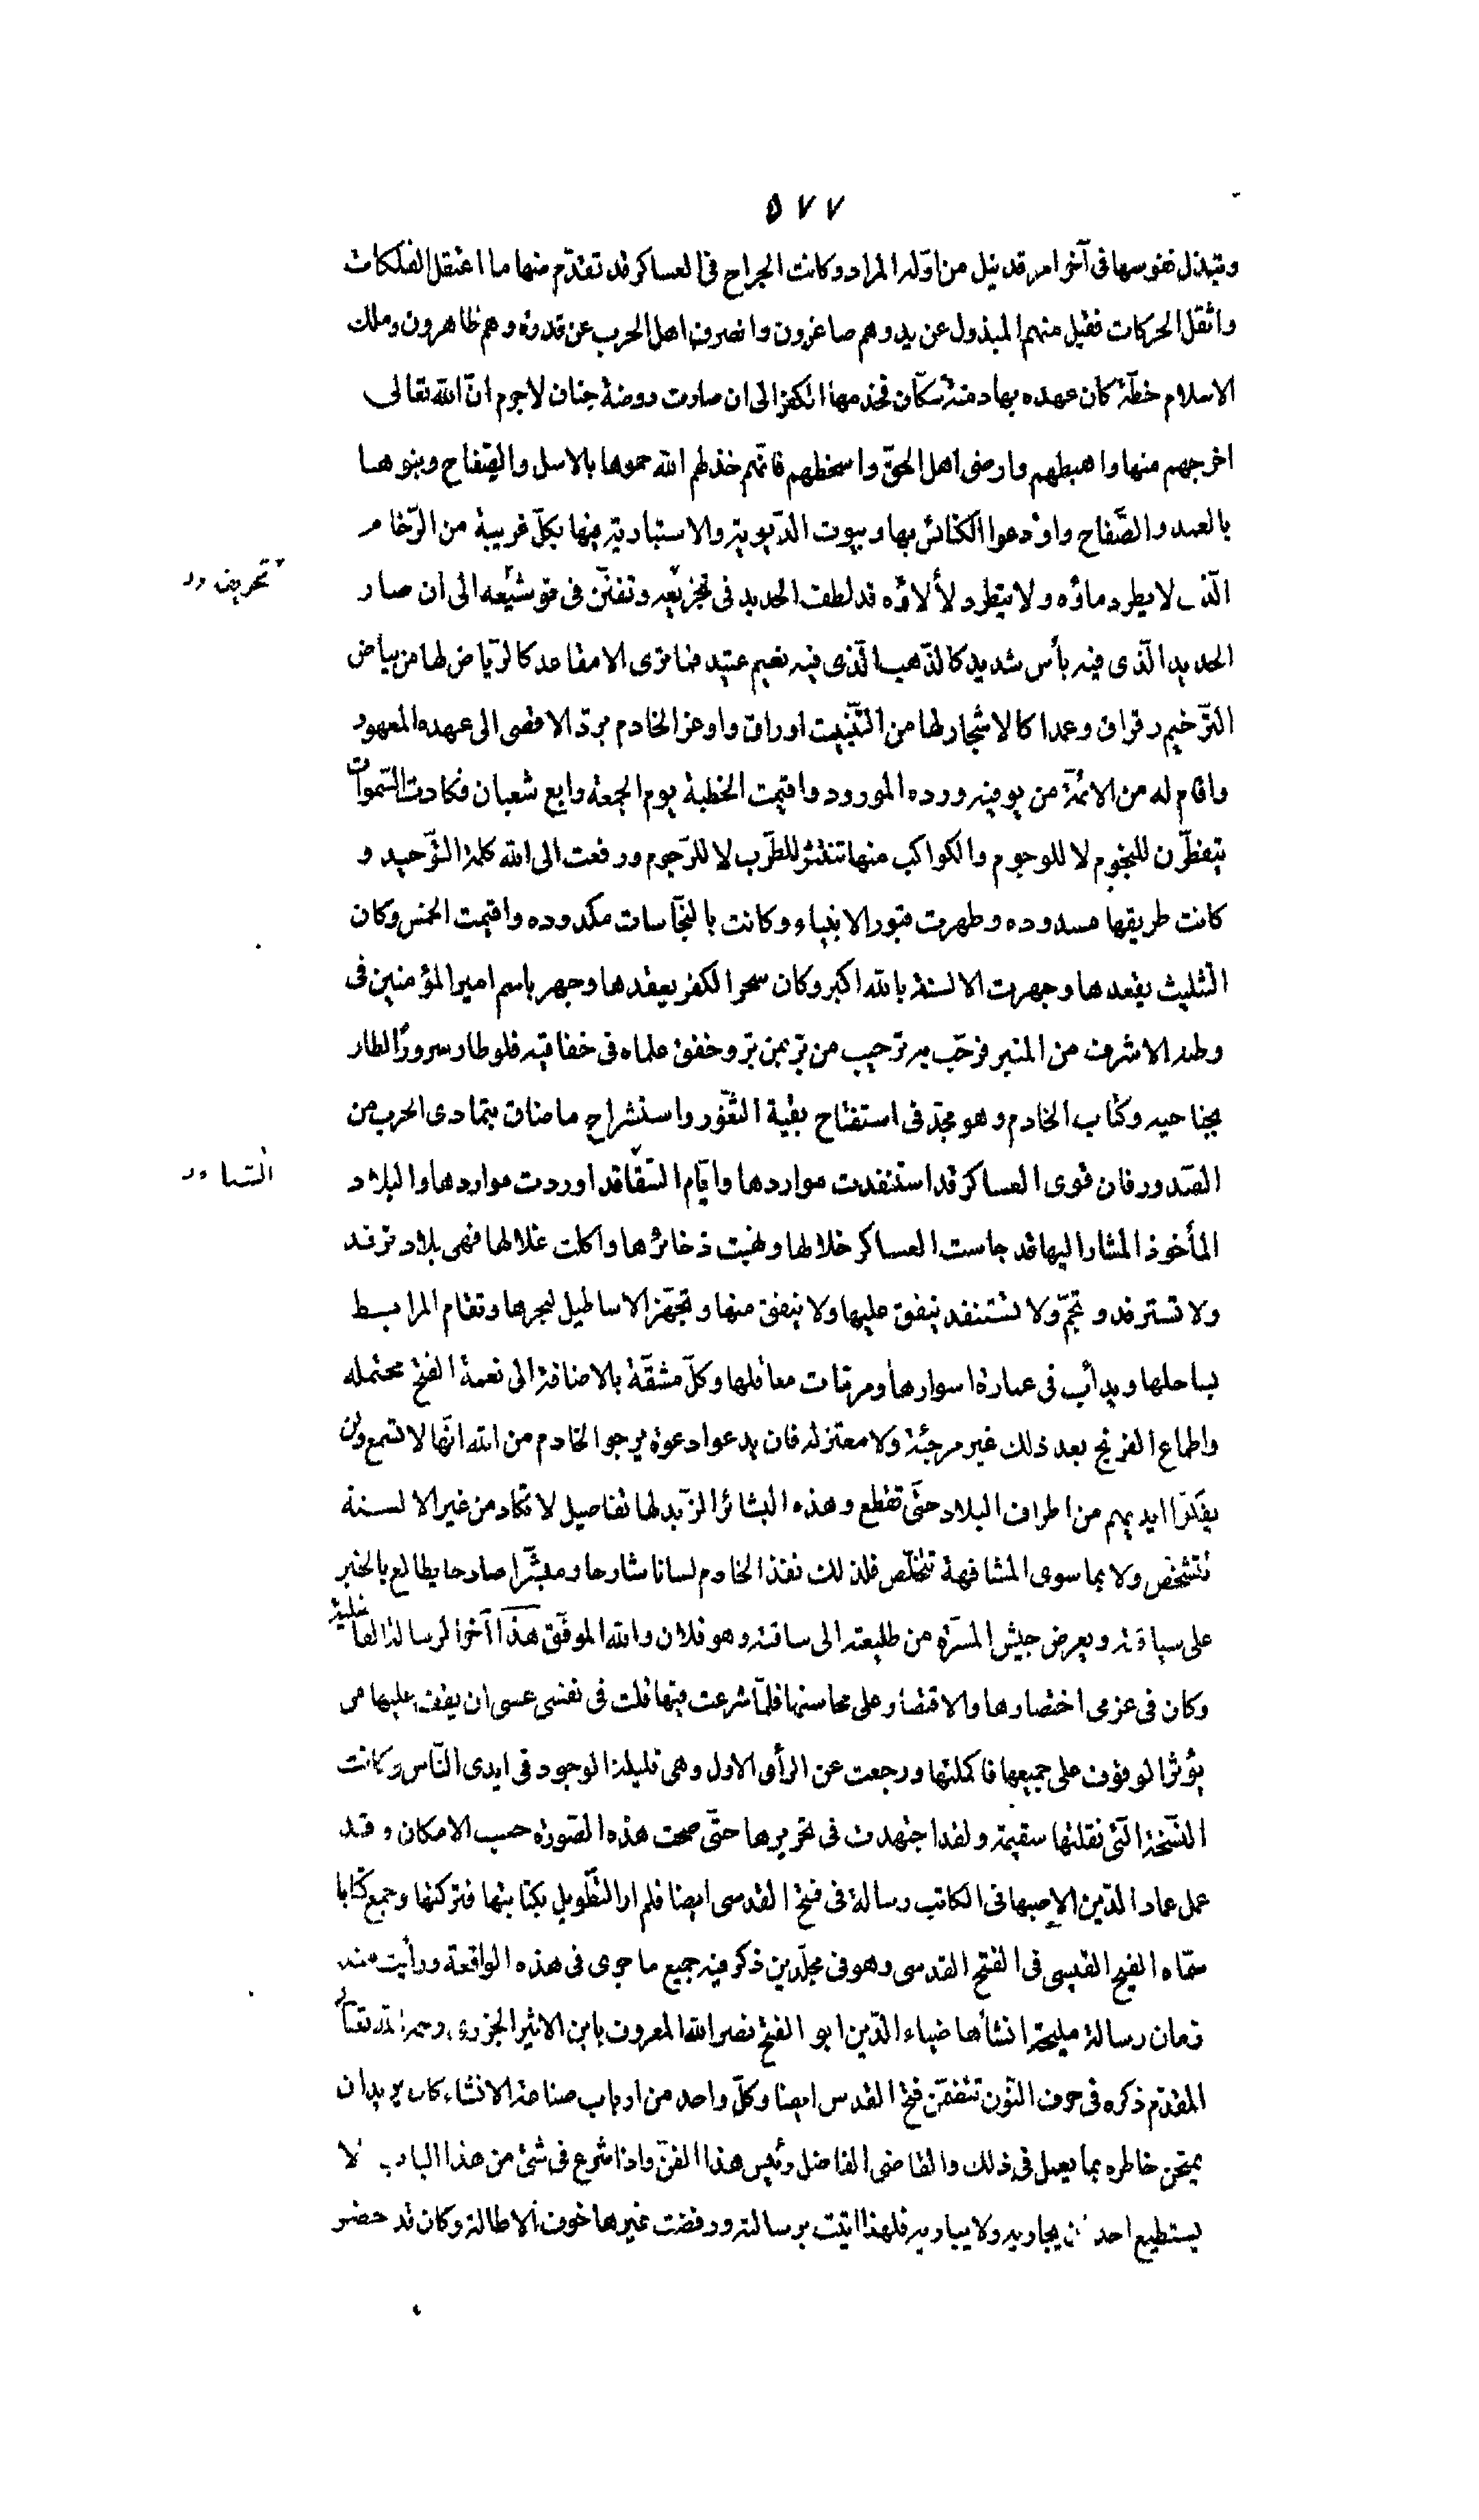 ٥٧٧
وتبذل نفوسها فى آخر امر قد نيل من اوّله المراد وكانت الجراح فى العساكر قد تقدّم منها ما اعتقل الفلكات
واثقل الحركات فقبل منهم المبذول عن يد وهم صاغرون وانصرف اهل الحرب عن قدرة وهم ظاهرون وملك
الاسلام خطّة كان عهده بها دمنة سكّان فخدمها الكفر الى ان صارت روضة جنان لاجرم انّ الله تعالى
اخرجهم منها واهبطهم وارضى اهل الحقّ واسخطهم فانّهم خذلهم الله حموها بالاسل والصّفاح وبنوها
بالعمد والصّفاح واودعوا الكنائس بها وبيوت الدّيوية والاستبارية فيها بكلّ غريبة من الرّخام
الّذى لا يطرد ماؤه ولا يتطرد لألاؤه قد لطف الحديد فى تجزيعه وتفنّن فى توشيعه الى ان صار
تحريف
الحديد الّذى فيه بأس شديد كالذّهب الّذى فيه نعيم عتيد فما ترى الا مقاعد كالرّياض لها من بياض
التّرخيم رقراق وعمدا كالاشجار لها من التّنبيت اوراق واوعز الخادم بردّ الاقصى الى عهده المعهود
واقام له من الائمّة من يوفيه ورده المورود واقيمت الخطبة يوم الجمعة رابع شعبان فكادت السّموات
يتفطّرن للنجوم لا للوجوم والكواكب منها تنتثر للطّرب لا للرّجوم ورفعت الى الله كلمة التّوحيد و
كانت طريقها مسدوده وطهرت قبور الانبياء وكانت بالنجّاسات مكدوده واقيمت الخمس وكان
التّثليث يقعدها وجهرت الالسنة بالله اكبر وكان سحر الكفر يعقدها وجهر باسم امير المؤمنين فى
وطنه الاشرف من المنبر فرحّب به ترحيب من برّ بمن برّ وخفق علماه فى خفافيه فلو طار سرورًا لطار
بجناحيه وكتاب الخادم وهو مجدّ فى استفتاح بقية الثّغور واستشراح ما ضاق بتمادى الحرب من
الصّدور فان قوى العساكر قد استنفدت مواردها وايّام الشّتا قد اوردت مواردها والبلاد
الشتا
المأخوذ المشار اليها قد جاست العساكر خلالها ونهبت ذخائرها واكلت غلالها فهى بلاد ترفد
ولا تسترفد وتجمّ ولا تستنفد ينفق عليها ولا ينفق منها وتجهّز الاساطيل لبحرها وتقام المرابط
بساحلها ويدأب فى عمارة اسوارها ومرمّات معاقلها وكلّ مشقّة بالاضافة الى نعمة الفتح محتمله
واطماع الفرنج بعد ذلك غير مرجئة ولا معتزله فان يدعوا دعوة يرجو الخادم من الله انّها لا تسمع ولن
يفكّوا ايديهم من اطراف البلاد حتّى تقطع وهذه البشائر الزّبد لها تفاصيل لا تكاد من غير الالسنة
تتشخّص ولا بما سوى المشافهة تتلخّص فلذلك نفذ الخادم لسانا شارحا ومبشّرا صادحا يطالع بالخبر
على سياقته ويعرض جيش المسرّة من طليعته الى ساقته وهو فلان والله الموفّق هذا آخر الرسالة الفاضلية
وكان فى عزمى اختصارها والاقتصار على محاسنها فلمّا شرعت فيها قلت فى نفسى عسى ان يقف عليها من
يؤثر الوقوف على جميعها فاكملتها ورجعت عن الرأى الاول وهى قليلة الوجود فى ايدى النّاس وكانت
النّسّخة الّتى نقلتها سقيمة ولقد اجتهدت فى تحريرها حتّى صحت هذه الصّورة حسب الامكان وقد
عمل عماد الدّين الاصبهانى الكاتب رسالة فى فتح القدسى ايضا فلم ار التّطويل بكتابتها فتركتها وجمع كتابا
سمّاه الفيح القسى فى الفتح القدسى وهو فى مجلّدين ذكر فيه جميع ما جرى فى هذه الواقعة ورأيت منذ
زمان رسالة مليحة انشأها ضياء الدّين ابو الفتح نصر الله المعروف بابن الاثير الجزرى رحمه الله تعالى
المقدّم ذكره فى حرف النّون تتضمّن فتح القدس ايضا وكلّ واحد من ارباب صناعة الانشاء كان يريد ان
يمتحن خاطره بما يعمل فى ذلك والقاضى الفاضل رئيس هذا الفنّ واذا شرع فى شئ من هذا الباب لا
يستطيع احد ان يجاريه ولا يباريه فلهذا اتيت برسالته ورفضت غيرها خوف الاطالة وكان قد حضر